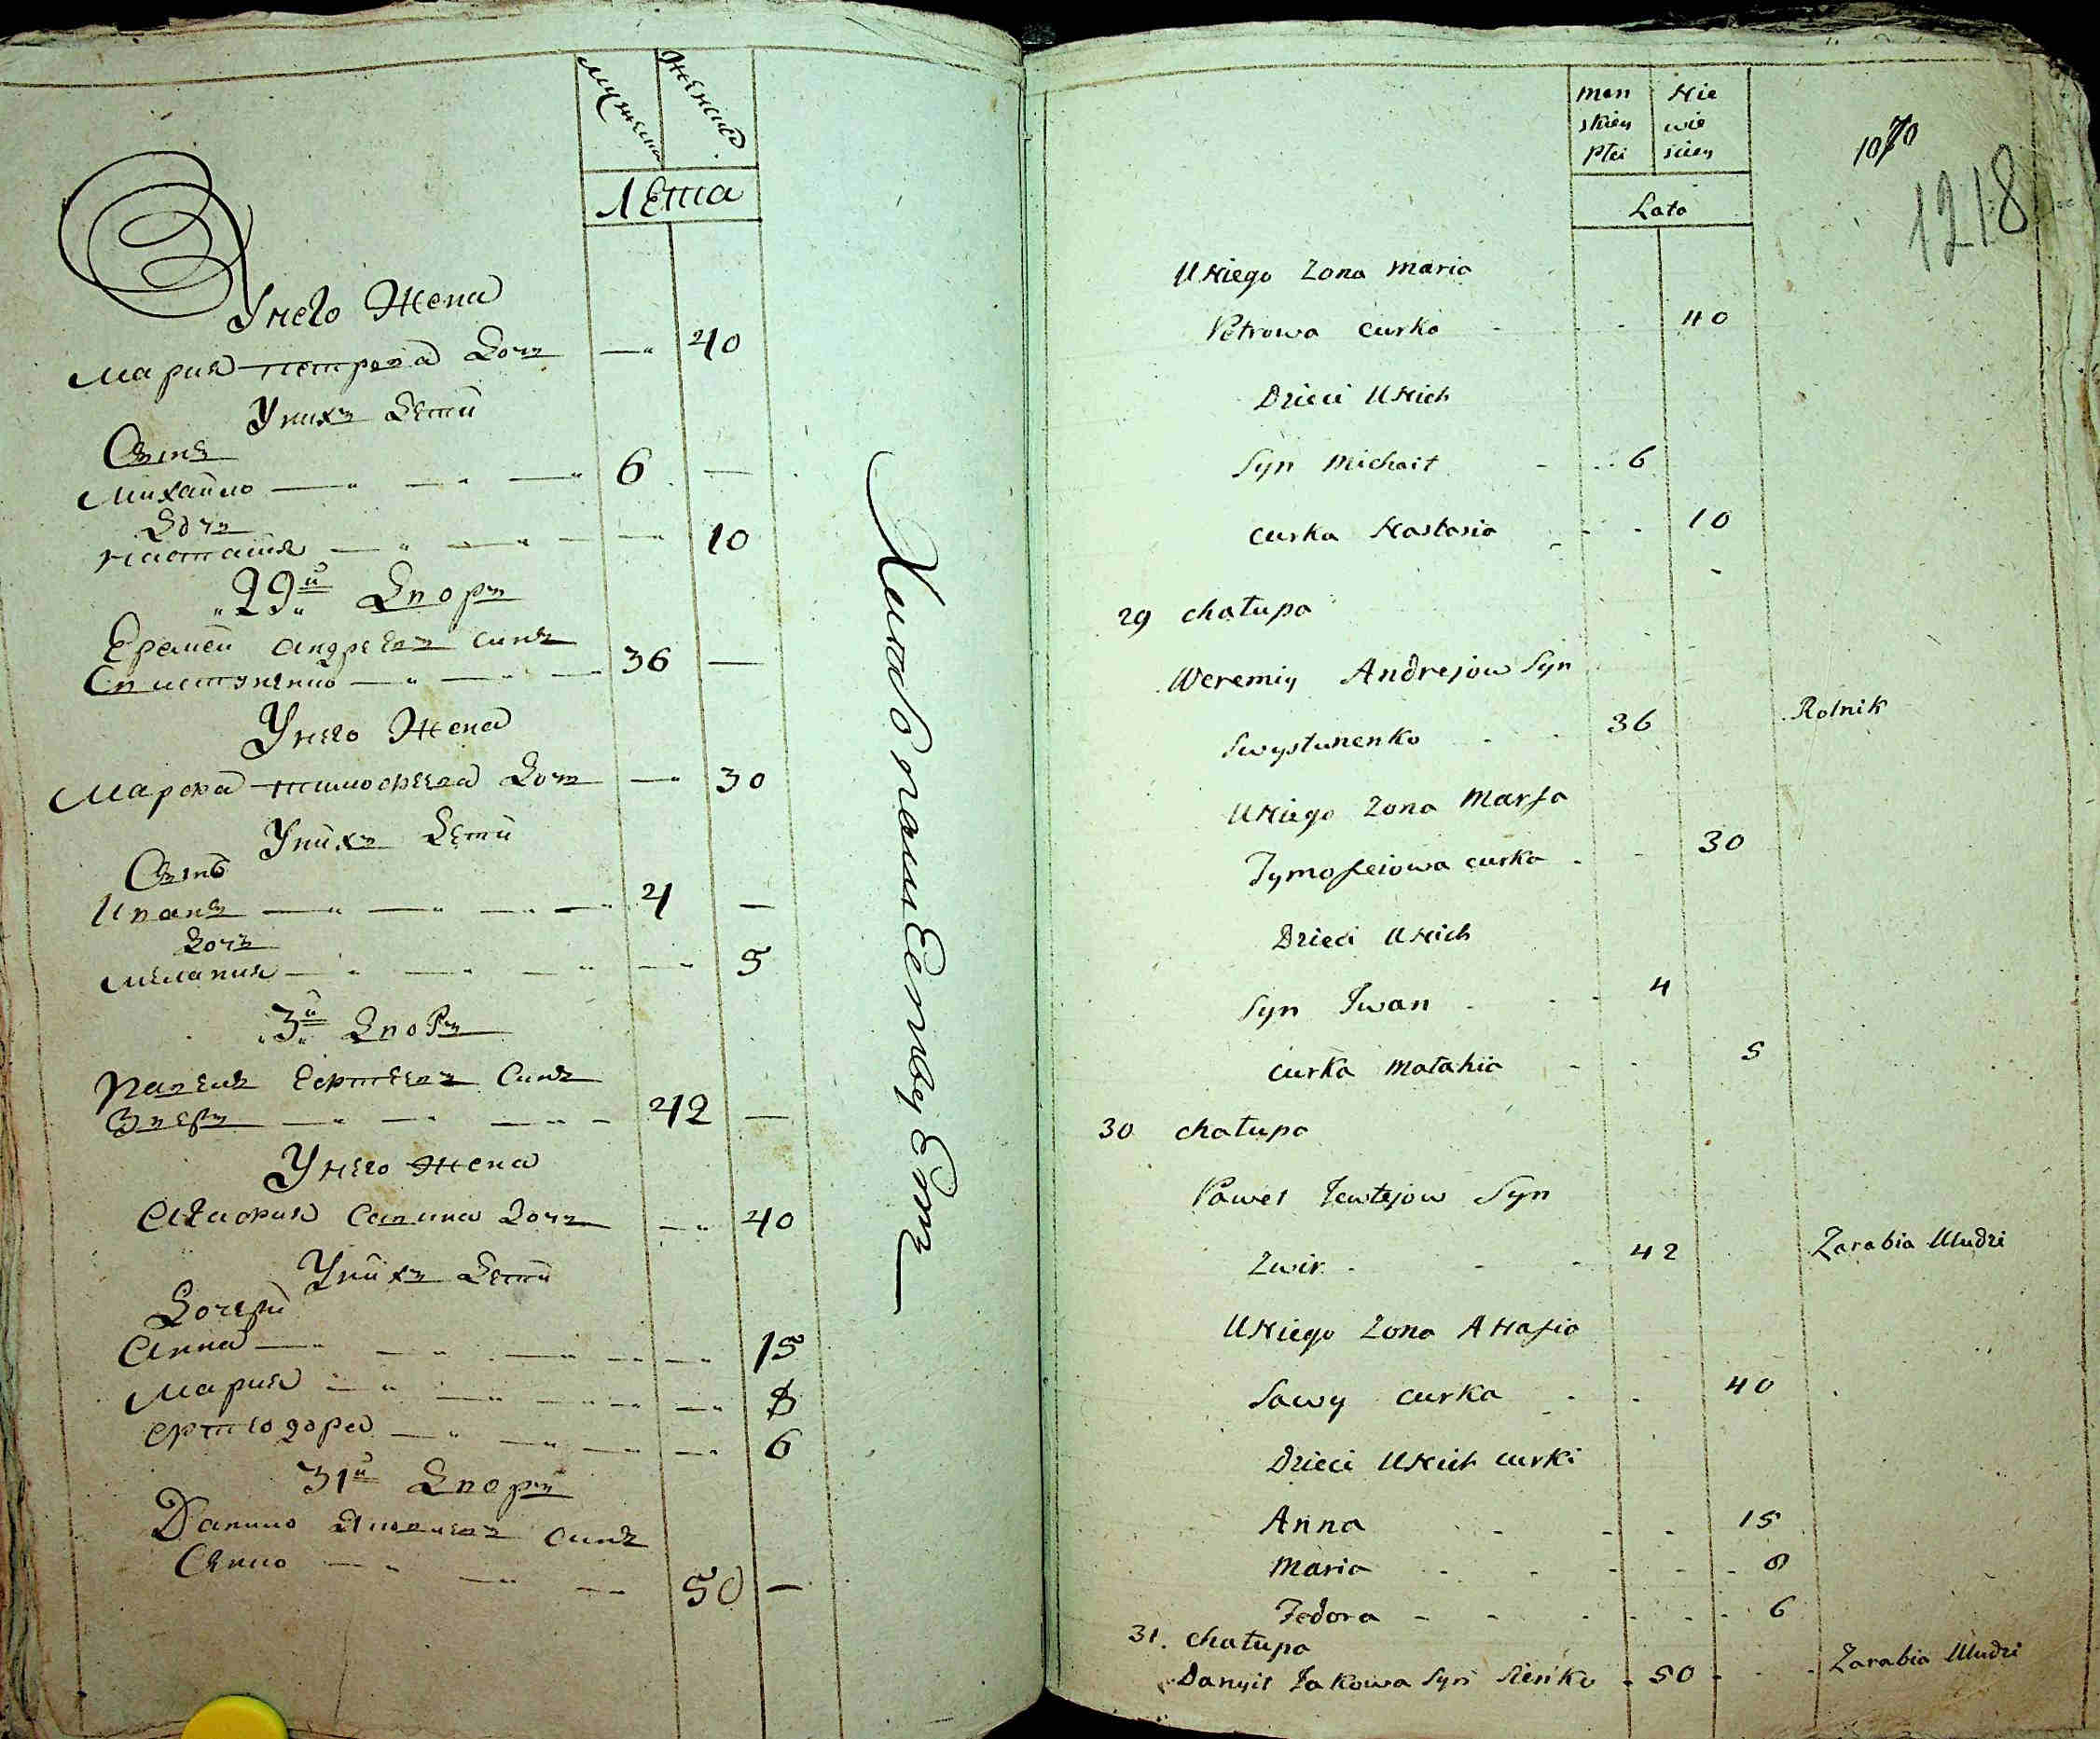 Мужеска
Женска
Лета
У него Жена
Мария петрова Дочъ —„ 40
У нихъ Дети
Синъ
Михаило —„ —„ —„ 6 —
Дочъ
Настасия —„ —„ — —„ 10
„29„й Дворъ
Еремей андреевъ синъ
Свистуненко —„ —„ — 36 —
У него Жена
Марфа тимофеева Дочъ —„ 30
У нихъ Дети
Синъ
Иванъ —„ —„ —„ — 4 —
Дочъ
мелания —„ —„ —„ —„ 5
„3„й Дворъ
Павелъ Евтеевъ Синъ
Звѣръ —„ —„ —„ — 42 —
У него Жена
Агафия Савина Дочъ —„ 40
У нихъ Дети
Дочери
Анна —„ —„ —„ —„ —„ 15
Мария —„ —„ —„ —„ 8
Феодора —„ —„ —„ —„ 6
31й Дворъ
Данило Яковлевъ синъ
Сенко —„ —„ —„ 50 —
men Nie
skiey wie
Płci sciey
Lata
1070
1218
U Niego Zona Maria
Petrowa curka - - - 40
Dzieci U Nich
Syn Michaił - - 6
curka Nastasia - - - 10
29 chałupa
Weremiy Andrejow Syn
Swystunenko - - 36 Rolnik
U Niego Zona Marfa
Tymofeiowa curka - - 30
Dzieci U Nich
Syn Iwan - - - 4
curka Małahia - - 5
30 chałupa
Paweł Jewtejow Syn
Zwir - - - 42 Zarabia U ludzi
U Niego Zona Ahafia
Sawy curka - - 40
Dzieci U Nich curki
Anna - - - 15
Maria - - - - - 8
Fedora - - - - - - 6
31. chałupa
Danyił Jakowa Syn Sieńko - 50 - - - Zarabia U ludzi